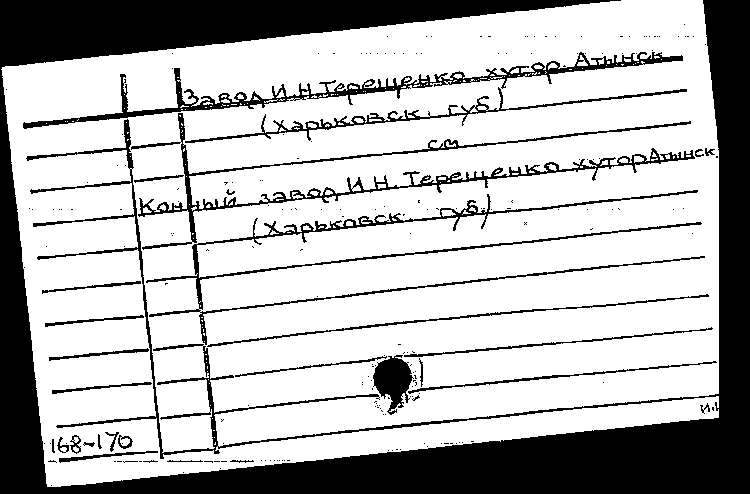 Завод И.Н. Терещенко хутор Атынск
(Харьковск. губ.)
см
Конный завод И.Н. Терещенко хутор Атынск.
(Харьковск. губ.)
168-170